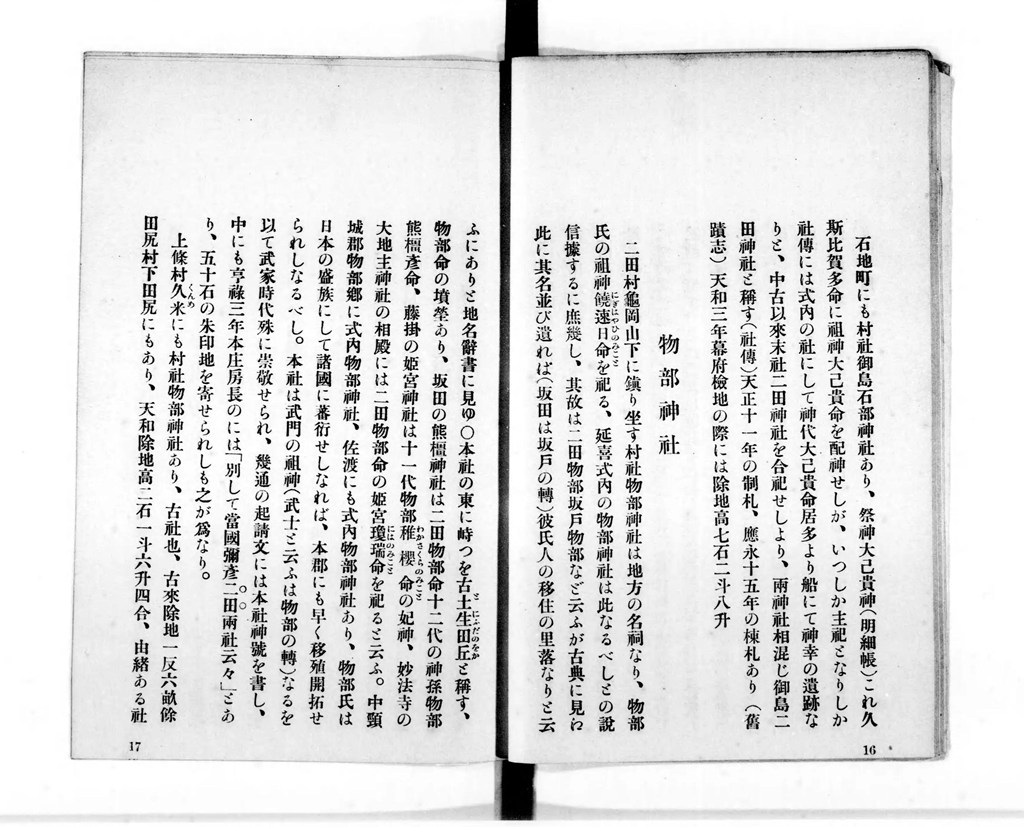 石地町にも村社御島石部神社あり、祭神大己貴神(明細帳)これ久
斯比賀多命に祖神大己貴命を配神せしが、いつしか主祀となりしか
社傳には式內の社にして神代大己貴命居多より船にて神幸の遺跡な
りと、中古以來末社二田神社を合祀せしより、兩神社相混じ御島二
田神社と稱す(社傳)天正十一年の制札、應永十五年の棟札あり(舊
蹟志)天和三年幕府檢地の際には除地高七石二斗八升
物部神社
二田村龜岡山下に鎭り坐す村社物部神社は地方の名祠なり、物部
氏の祖神饒速日命を祀る、延喜式內の物部神社は此なるべしとの說
にぎはやひのみこと
信據するに庶幾し、其故は二田物部坂戸物部など云ふが古典に見わ
此に其名並び遺れば(坂田は坂戸の轉)彼氏人の移住の里落なりと云
16
ふにありと地名辭書に見ゆ〇本社の東に峙つを古土生田丘と稱す、
こにふだのをか
物部命の墳塋あり、坂田の熊橿神社は二田物部命十二代の神孫物部
熊橿彥命、藤掛の姫宮神社は十一代物部稚櫻命の妃神、妙法寺の
わかさくらのみこと
大地主神社の相殿には二田物部命の姫宮瓊瑞命を祀ると云ふ。中頸
にはのみこと
城郡物部鄕に式內物部神社、佐渡にも式內物部神社あり、物部氏は
日本の盛族にして諸國に蕃衍せしなれば、本郡にも早く移殖開拓せ
られしなるべし。本社は武門の祖神(武士と云ふは物部の轉)なるを
以て武家時代殊に崇敬せられ、幾通の起請文には本社神號を書し、
中にも亨祿三年本庄房長のには「別して當國彌彥二田兩社云々」とあ
り、五十石の朱印地を寄せられしも之が爲なり。
上條村久米にも村社物部神社あり、古社也、古來除地一反六畝餘
くんめ
田尻村下田尻にもあり、天和除地高二石一斗六升四合、由緖ある社
17